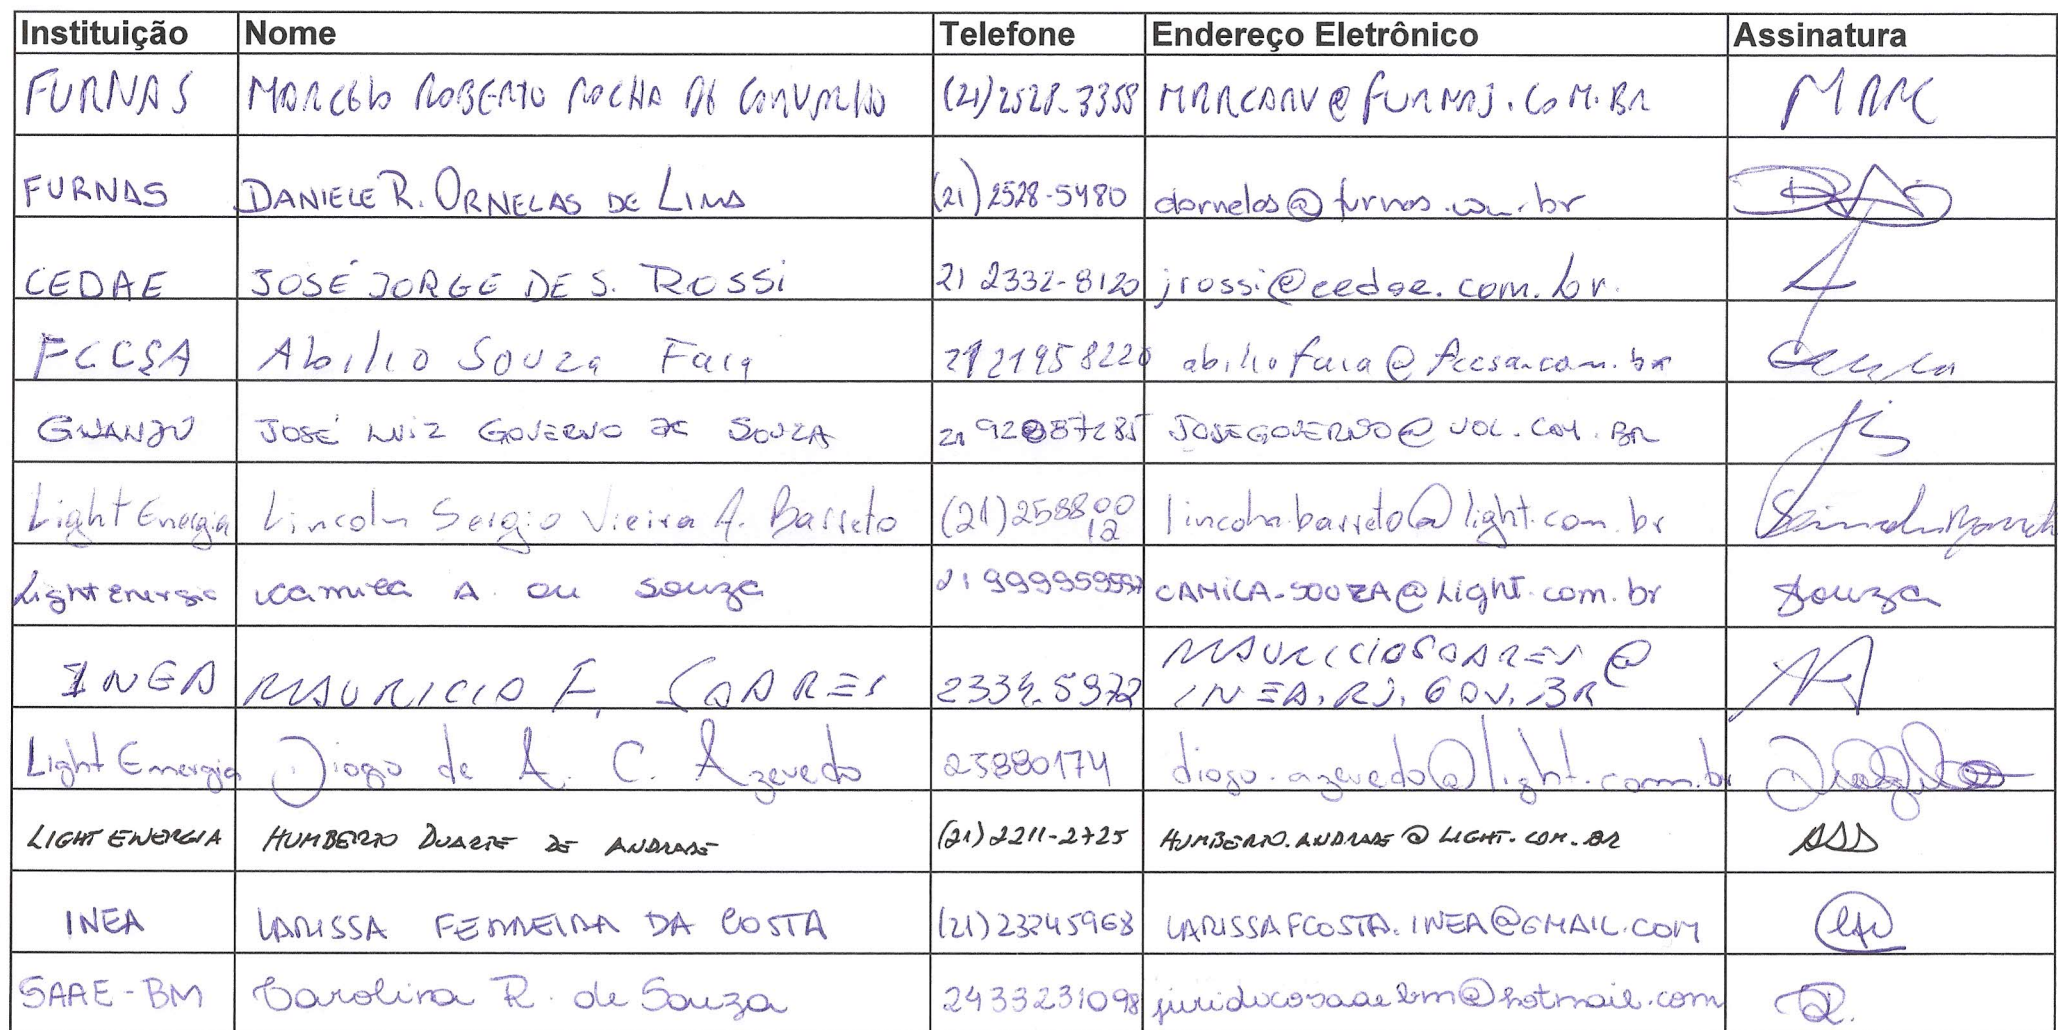 Instituição Nome Telefone Endereço Eletrônico Assinatura
FURNAS MARCELO ROBERTO ROCHA DE CARVALHO (21)2528-3358 MRRCARV@FURNAS.COM.BR MRRC
FURNAS DANIELE R. ORNELAS DE LIMA (21)2528-5480 dornelas@furnas.com.br
CEDAE JOSÉ JORGE DE S. ROSSi 21 2332-8120 jrossi@cedae.com.br.
FCCSA Abilio Souza Faia 21 21958220 abilio faia@fccsa.com.br
GWANZU JOSÉ LUIZ GOVERNO DE SOUZA JOSEGOVERNO@UOL.COM.BR
Light Energia Lincoln Sergio Vieira A. Barreto (21)25880012 lincoln.barreto@light.com.br
Light Energia Camila A. de Souza CAMILA.SOUZA@Light.com.br Souza
INEA MAURICIO F. SOARES 2334-5972 MAURICIOSOARES@
INEA.RJ.GOV.BR
Light Energia Diogo de A. C. Azevedo 25880174 diogo.azevedo@light.com.br
LIGHT ENERGIA HUMBERTO DUARTE DE ANDRADE (21)2211-2725 HUMBERTO.ANDRADE@LIGHT.COM.BR
INEA LARISSA FERREIRA DA COSTA (21)23345968 LARISSAFCOSTA.INEA@GMAIL.COM
SAAE-BM Carolina R. de Souza 2433231098 juridicosaaebm@hotmail.com